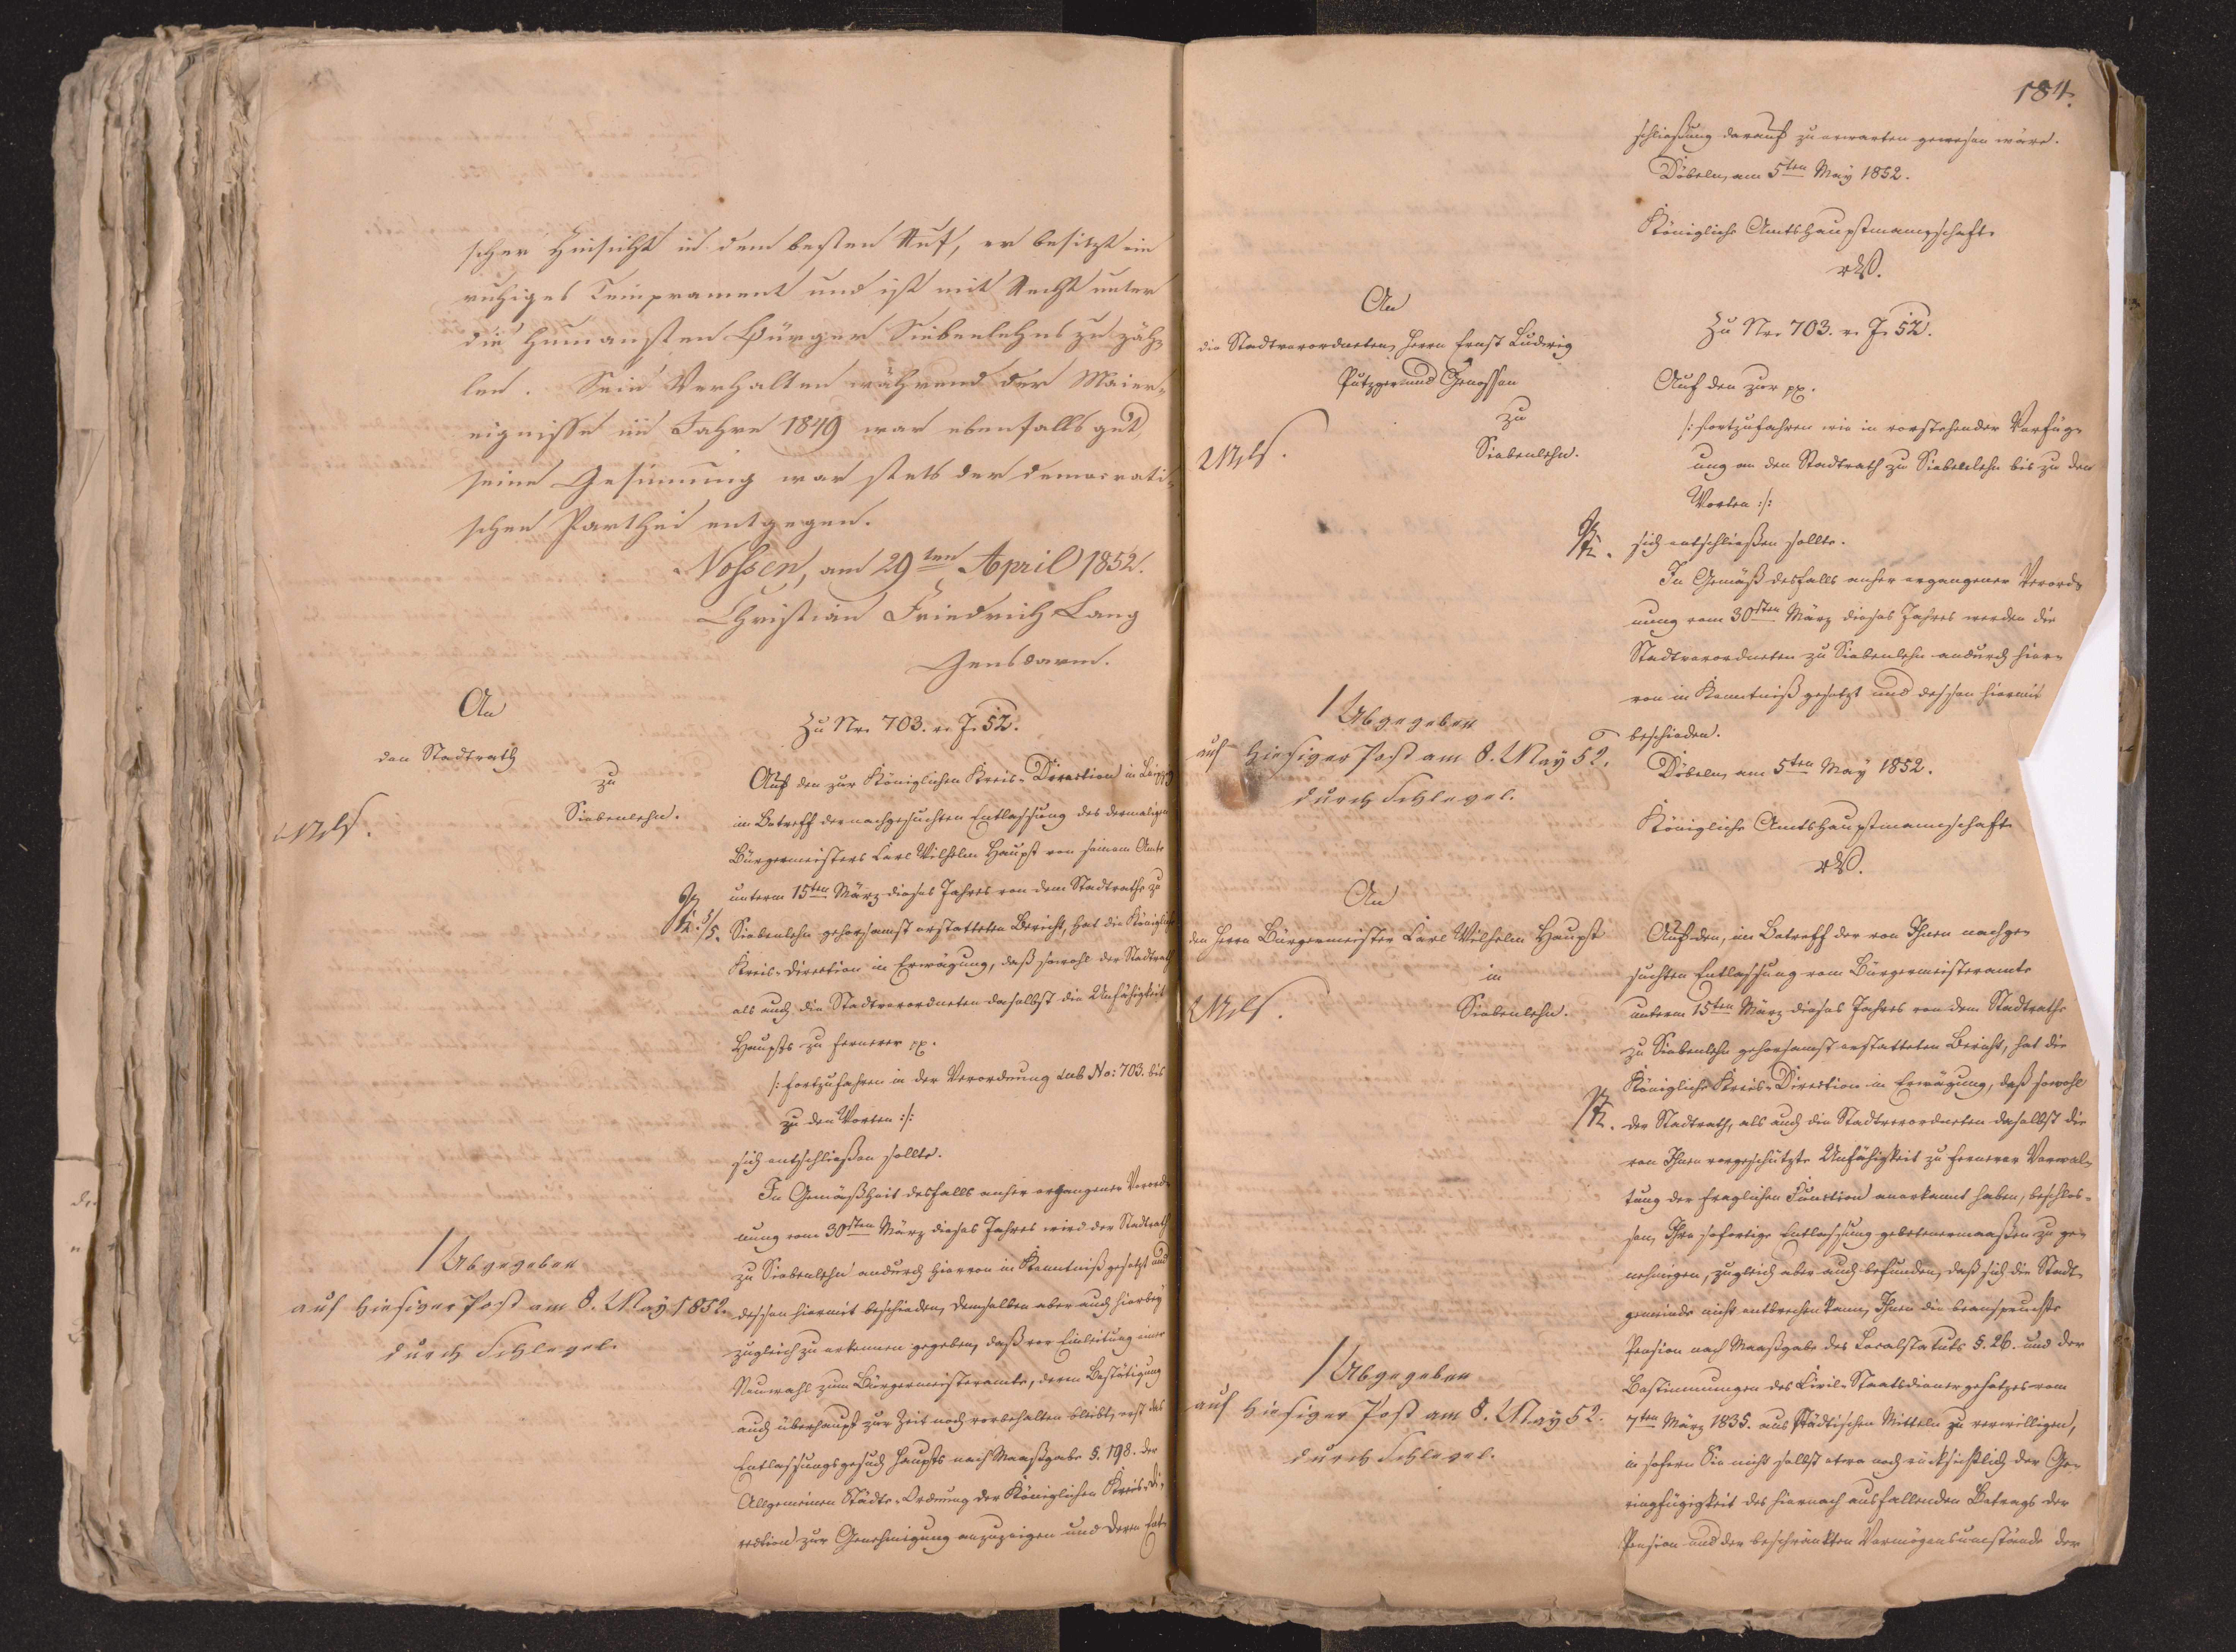 scher Hinsicht in dem besten Ruf, er besitzt ein
ruhiges Temprament und ist mit Recht unter
die humansten Bürger Siebenlehns zu zäh-
len. Sein Verhalten während der Maier-
eignisse im Jahre 1849 war ebenfalls gut,
seine Gesinnung war stets der democrati-
schen Parthei entgegen.
Nossen, am 29ten April 1852.
Christian Friedrich Lang
Gensdarm.
An
den Stadtrath
zu
Siebenlehn.
Abgegeben
auf hiesiger Post am 8. May 1852.
durch Schlegel.
Zu Nr. 703. v. J. 52.
Auf den zur Königlichen Kreis-Direction in Leipzig
im Betreff der nachgesuchten Entlassung des dermaligen
Bürgermeisters Carl Wilhelm Haupt von seinem Amte
unterm 15ten März dieses Jahres von dem Stadtrathe zu
Siebenlehn gehorsamst erstatteten Bericht, hat die Königliche
Kreis-Direction in Erwägung, daß sowohl der Stadtrath
als auch die Stadtverordneten daselbst die Unfähigkeit
Haupts zu fernerer pp.
/: fortzufahren in der Verordnung sub No: 703. bis
zu den Worten :/:
sich entschließen sollte.
In Gemäßheit desfalls anher ergangener Verord-
nung vom 30sten März dieses Jahres wird der Stadtrath
zu Siebenlehn andurch hiervon in Kenntniß gesetzt und
dessen hiermit beschieden, demselben aber auch hierbey
zugleich zu erkennen gegeben, daß vor Einleitung einer
Neuwahl zum Bürgermeisteramte, deren Bestätigung
auch überhaupt zur Zeit noch vorbehalten bleibt, erst das
Entlassungsgesuch Haupts nach Maaßgabe §. 198. der
Allgemeinen Städte-Ordnung der Königlichen Kreis-Di-
rection zur Genehmigung anzuzeigen und deren Ent-
184.
schließung darauf zu erwarten gewesen wäre.
Döbeln, am 5ten May 1852.
Königliche Amtshauptmannschaft.
An
die Stadtverordneten, Herrn Ernst Ludwig
Putzger und Genossen
zu
Siebenlehn.
Zu Nr. 703. v. J. 52.
Auf den zur pp.
/: fortzufahren wie in vorstehender Verfüg-
ung an den Stadtrath zu Siebenlehn bis zu den
Worten :/:
sich entschließen sollte.
In Gemäß desfalls anher ergangener Verord-
nung vom 30sten März dieses Jahres werden die
Stadtverordneten zu Siebenlehn andurch hier-
von in Kenntniß gesetzt und dessen hiermit
beschieden.
Döbeln, am 5ten May 1852.
Königliche Amtshauptmannschaft.
Abgegeben
auf hiesiger Post am 8. May 52.
durch Schlegel.
An
den Herrn Bürgermeister Carl Wilhelm Haupt
in
Siebenlehn.
Auf den, im Betreff der von Ihnen nachge-
suchten Entlassung vom Bürgermeisteramte
unterm 15ten März dieses Jahres von dem Stadtrathe
zu Siebenlehn gehorsamst erstatteten Bericht, hat die
Königliche Kreis-Direction in Erwägung, daß sowohl
der Stadtrath, als auch die Stadtverordneten daselbst die
von Ihnen vorgeschützte Unfähigkeit zu fernerer Verwal-
tung der fraglichen Function anerkannt haben, beschlos-
sen, Ihre sofortige Entlassung gebetenermaaßen zu ge-
nehmigen, zugleich aber auch befunden, daß sich die Stadt-
gemeinde nicht entbrechen kann, Ihnen die beanspruchte
Pension nach Maaßgabe des Localstatuts §. 26. und der
Bestimmungen des Civil-Staatsdienergesetzes vom
7ten März 1835. aus städtischen Mitteln zu verwilligen,
in sofern Sie nicht selbst etwa noch rücksichtlich der Ge-
ringfügigkeit des hiernach ausfallenden Betrags der
Pension und der beschränkten Vermögensumstände der
Abgegeben
auf hiesiger Post am 8. May 52.
durch Schlegel.